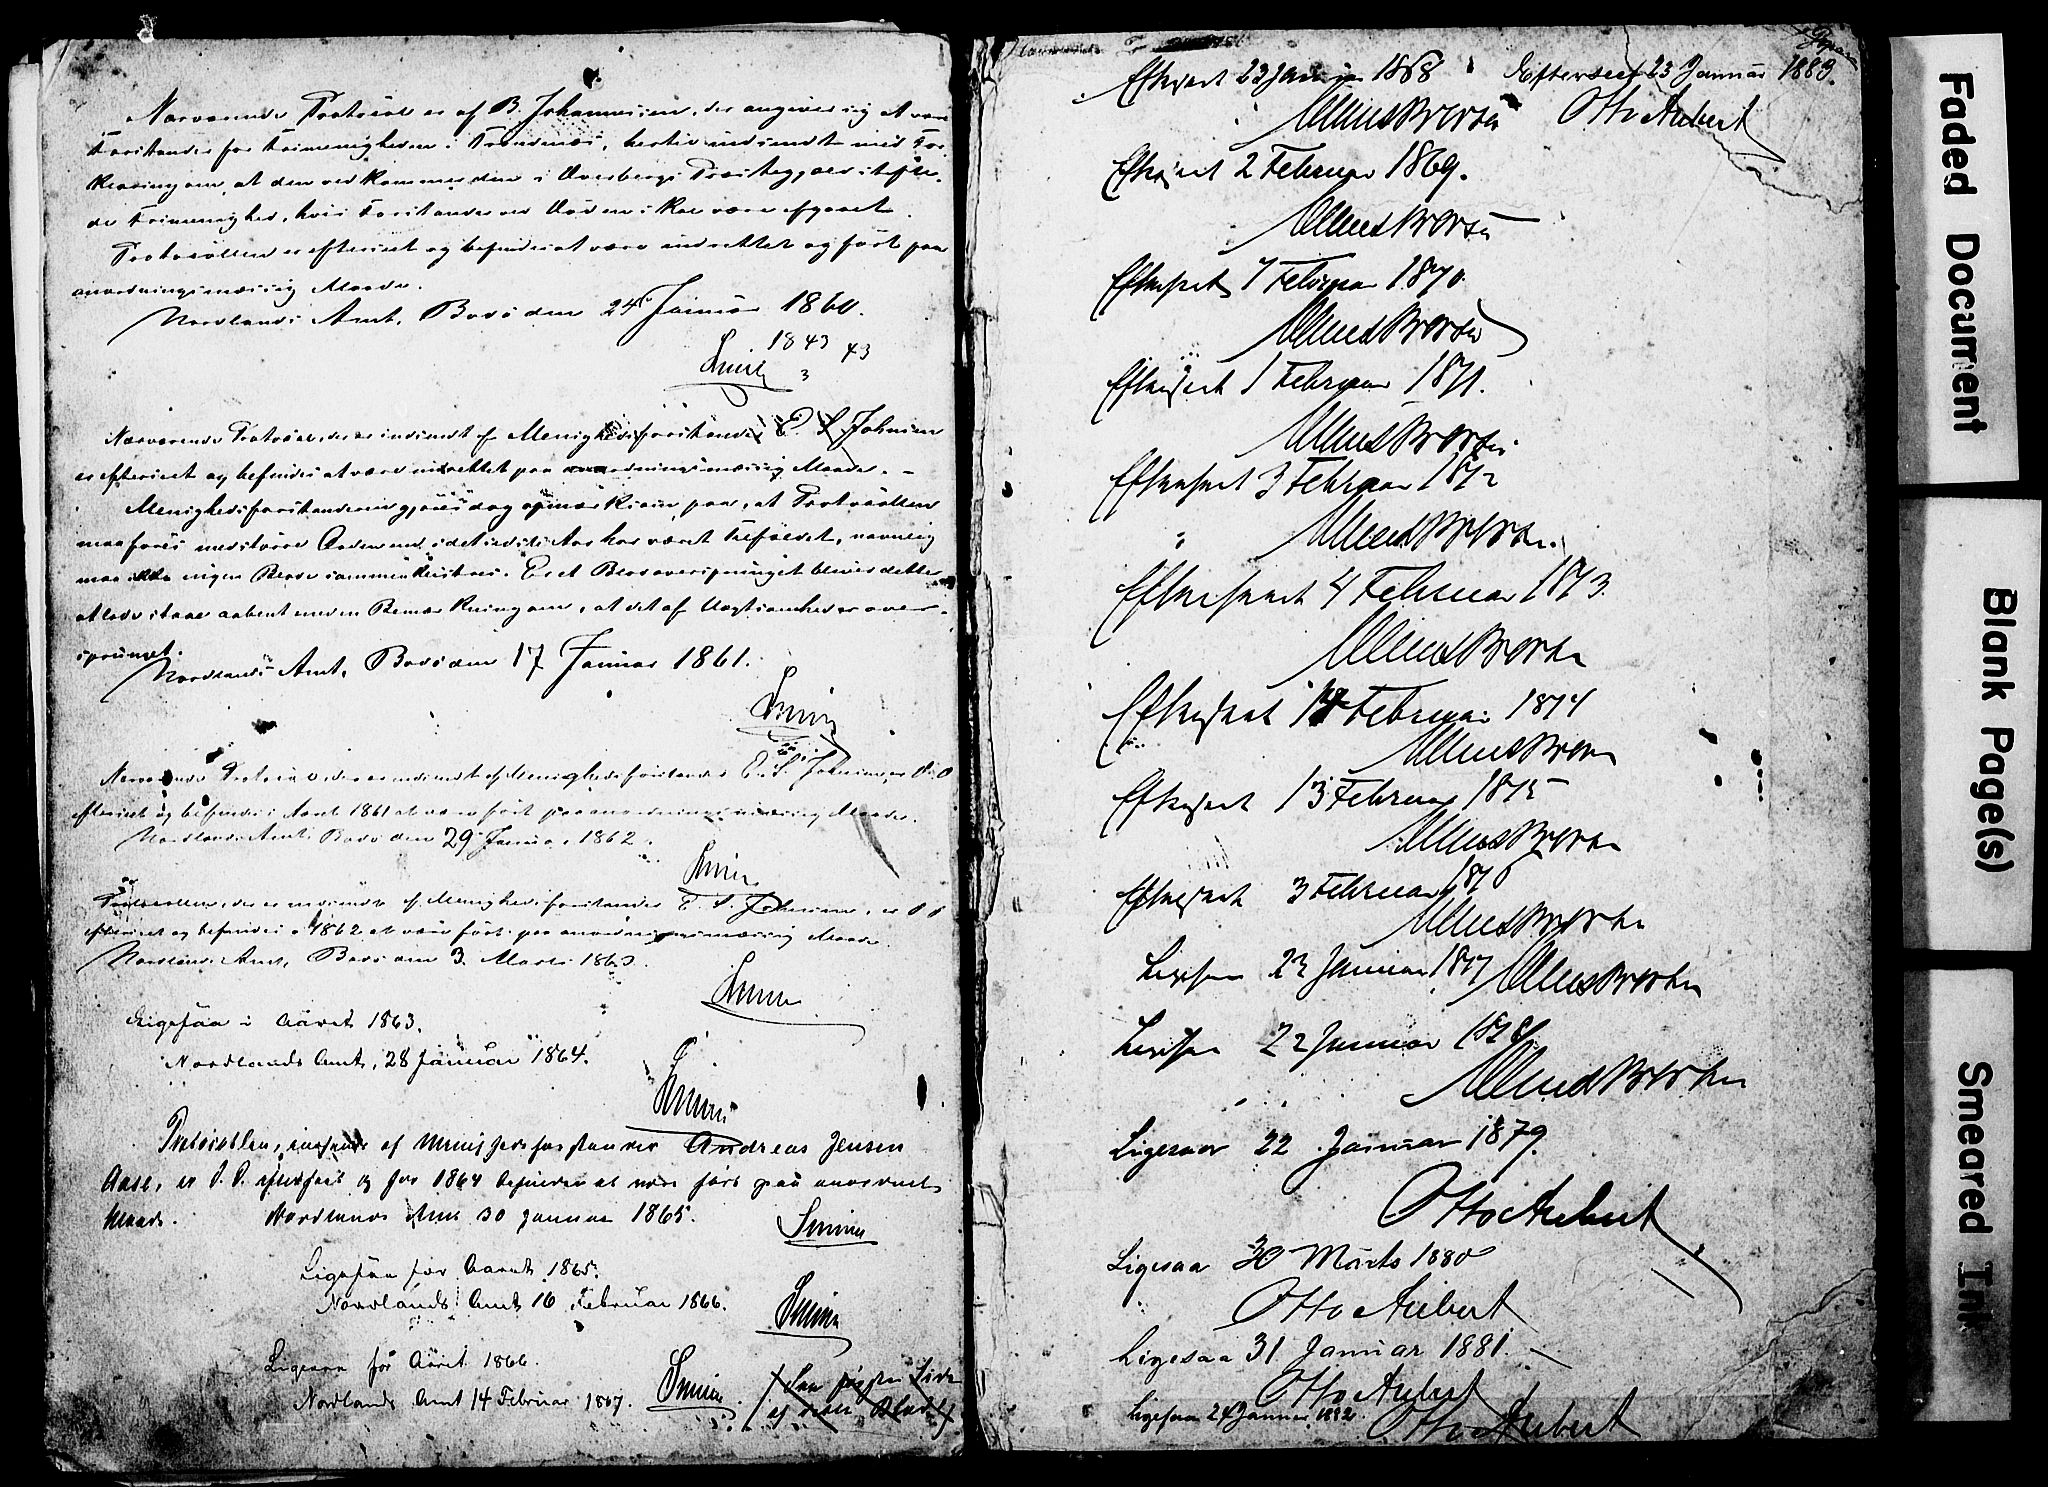 Nærværende Protocol er af B. Johannessen, der angiver sig at være
Forstander for Frimenigheden i Trondenæs, hertil indsendt med For-
klaring om, at den vedkommer den i Overbergs Præstegjæld stifte-
de Frimenighed, hvis Forstander ved Døden skal være afgaaet.
Protocollen er efterseet og befindes at være indrettet og ført paa
anordningsmæssig Maade.
Nordlands Amt, Bodø den 24de Januar 1860.
1843 43
3
Nærværende Protocol, der er indsendt af Menighedsforstander E. S. Johnsen
er efterseet og befindes at være indrettet paa anordningsmæssig Maade.
Menighedsforstanderen gjøres dog opmærksom paa, at Protocollen
maa føres med større Orden end i det sidste Aar har været Tilfældet, navnlig
maa ikke nogen Blade sammenklistres. Er et Blad oversprunget bliver dette
at lade staae aabent med en Bemærkning om, at det af Uagtsomhed er over-
sprunget.
Nordlands Amt, Bodø den 17 Januar 1861.
Nærværende Protocol der er indsendt af Menighedsforstander E. S. Johnsen, er D. D.
efterseet og befindes i Aaret 1861 at være ført paa anordningsmæssig Maade.
Nordlands Amt Bodø den 29 Januar 1862.
Protocollen, der er indsendt af Menighedsforstander E. S. Johnsen, er D. D.
efterseet og befindes i 1862 at være ført paa anordningsmæssig Maade.
Nordlands Amt, Bodø den 3 Marts 1863.
Ligesaa i Aaret 1863.
Nordlands Amt, 28 Januar 1864.
Protocollen, indsendt af Menighedsforstander Andreas Jensen
Aase, er D. D. efterseet og for 1864 befunden at være ført paa anordnet
Maade. Nordlands Amt 30 Januar 1865.
Ligesaa for Aaret 1865.
Nordlands Amt 16 Februar 1866.
Ligesaa for Aaret 1866.
Nordlands Amt 14 Februar 1867.
Efterseet 22 Januar 1868 Efterseet 23 Januar 1883.
Otto Aubert
Efterseet 2 Februar 1869.
Efterseet 7 Februar 1870.
Efterseet 1 Februar 1871.
Efterseet 3 Februar 1872
Efterseet 4 Februar 1873.
Efterseet 14 Februar 1874
Efterseet 13 Februar 1875
Efterseet 3 Februar 1876
Ligesaa 23 Januar 1877
Ligesaa 22 Januar 1878
Ligesaa 22 Januar 1879.
Otto Aubert
Ligesaa 30 Marts 1880
Otto Aubert
Ligesaa 31 Januar 1881.
Otto Aubert
Ligesaa 24 Januar 1882.
Otto Aubert
Faded Document
Blank Page(s)
Smeared Ink